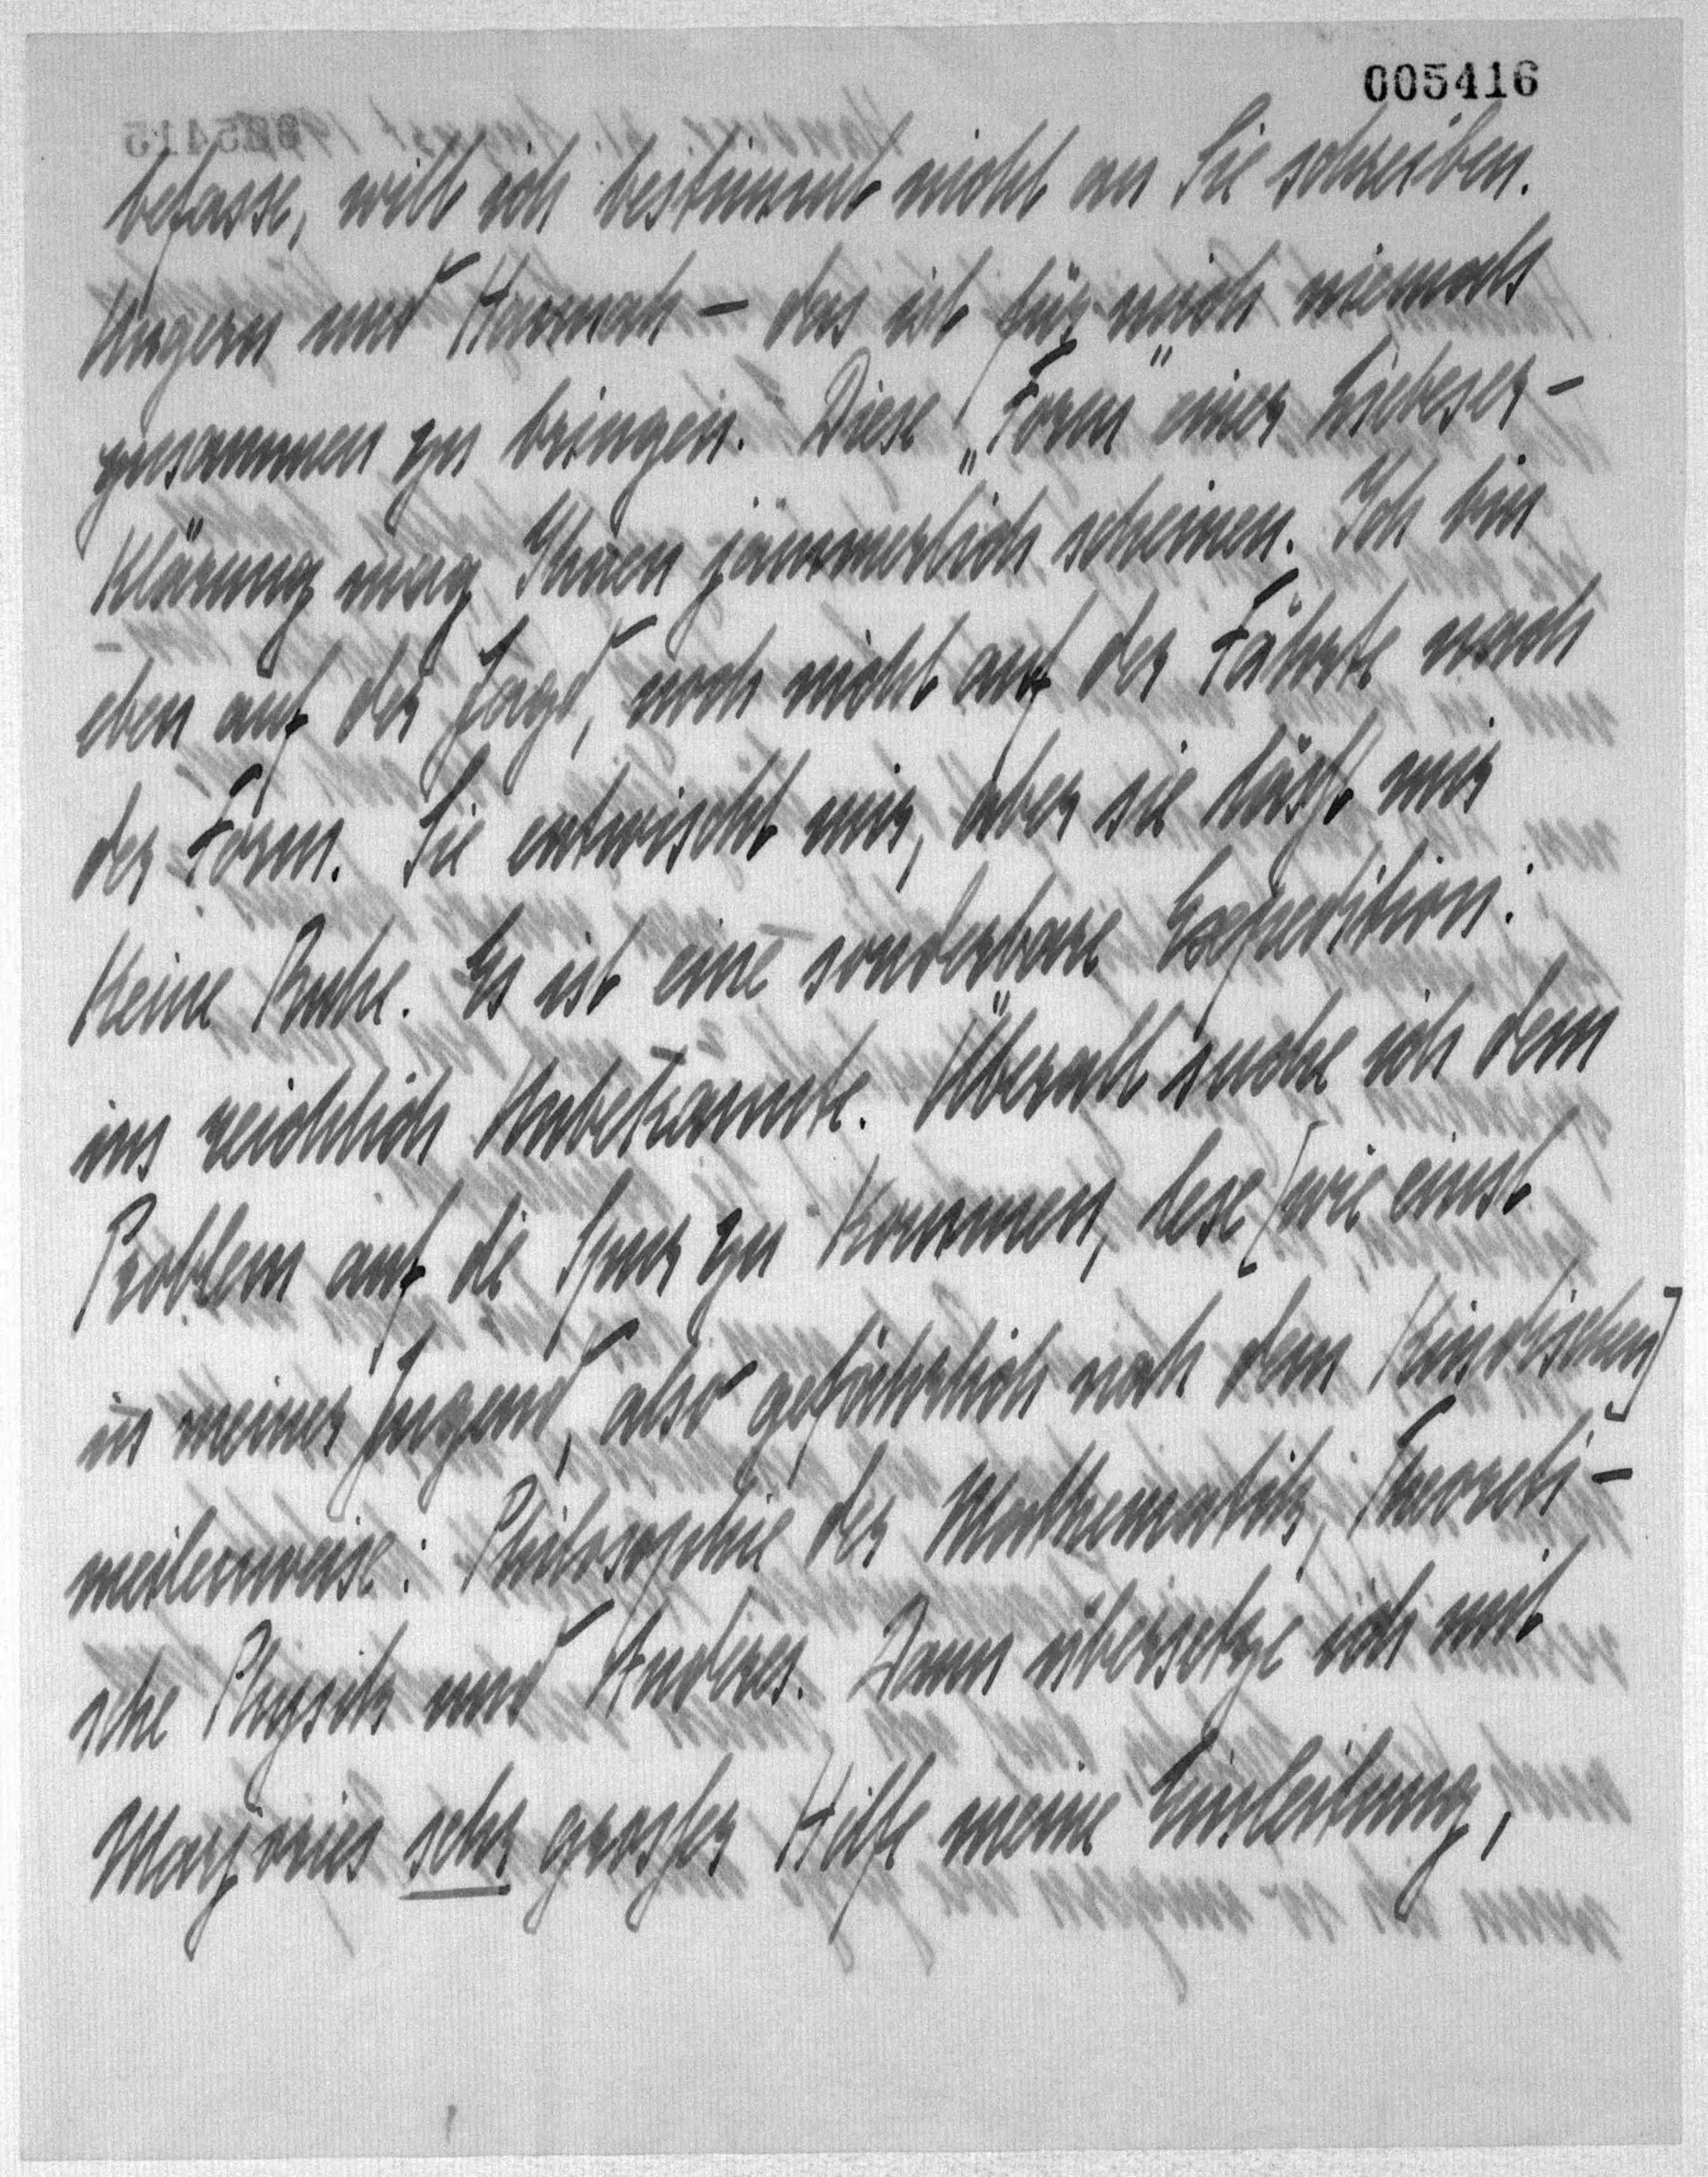 005416
befasse, will ich bestimmt nicht an Sie schreiben.
Ungern und Hannah – das ist für mich niemals
zusammen zu bringen. Diese „Form" einer Liebeser-
klärung mag Ihnen jämmerlich scheinen. Ich bin
eben auf der Jagd, noch nicht auf der Fährte nach
der Form. Sie entwischt mir, aber sie lässt mir
keine Ruhe. Es ist eine sonderbare Expedition:
ins reichlich Unbekannte. Überall suche ich dem
Problem auf die Spur zu kommen, lese [wie einst
in meiner Jugend, also gefährlich nah dem Kindischen]
meilenweise: Philosophie der Mathematik, Theoreti-
sche Physik und Anderes. Dann übersetze ich mit
Marjories sehr grosser Hilfe meine Einleitung,